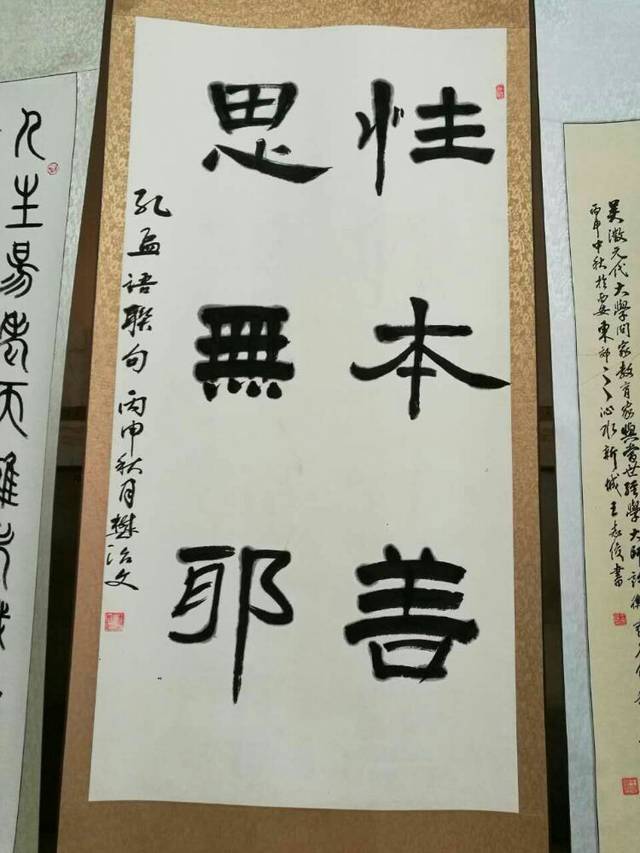 吴澂元代大學问家教育家與當世經學大師許衡
丙申中秋於西安東郊
沁水新城王
書
性本善
思無耶
孔孟語聯句 丙申秋月樊治文
人生易老天難老歲